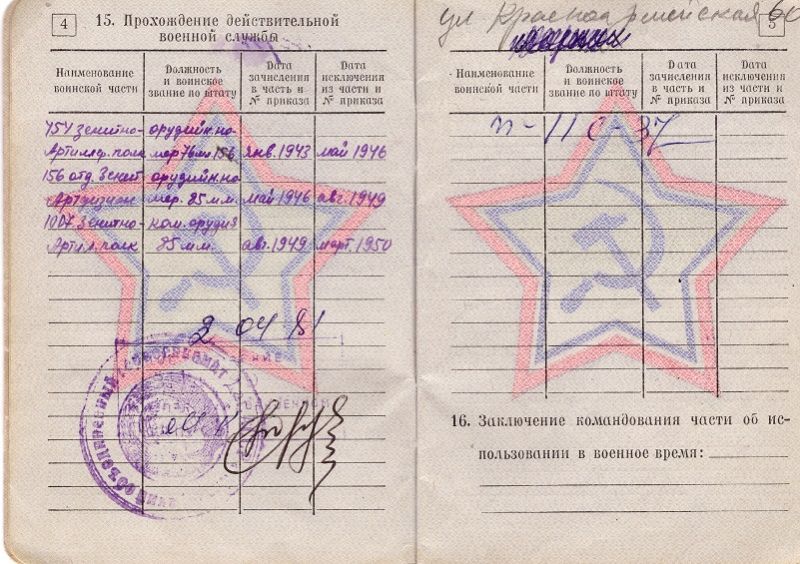 4
15. Прохождение действительной
военной службы
Наименование воинской части
Должность и воинское звание по штату
Дата зачисления в часть и № приказа
Дата исключения из части и № приказа
757 зенитно- орудийн. но-
Артиллер. полк мер 76 мм. 156 янв. 1943 май 1946
156 отд. Зенит. орудийн. но-
Артдивизион мер. 85 мм. май 1946 авг. 1949
1007 Зенитно- ком. орудия
Артил. полк 85 мм. авг. 1949 март. 1950
2 04 81
ОБЪЕДИНЕННЫЙ
ул Красноармейская 60
5
Наименование воинской части
Должность и воинское звание по штату
Дата зачисления в часть и № приказа
Дата исключения из части и № приказа
16. Заключение командования части об ис-
пользовании в военное время: